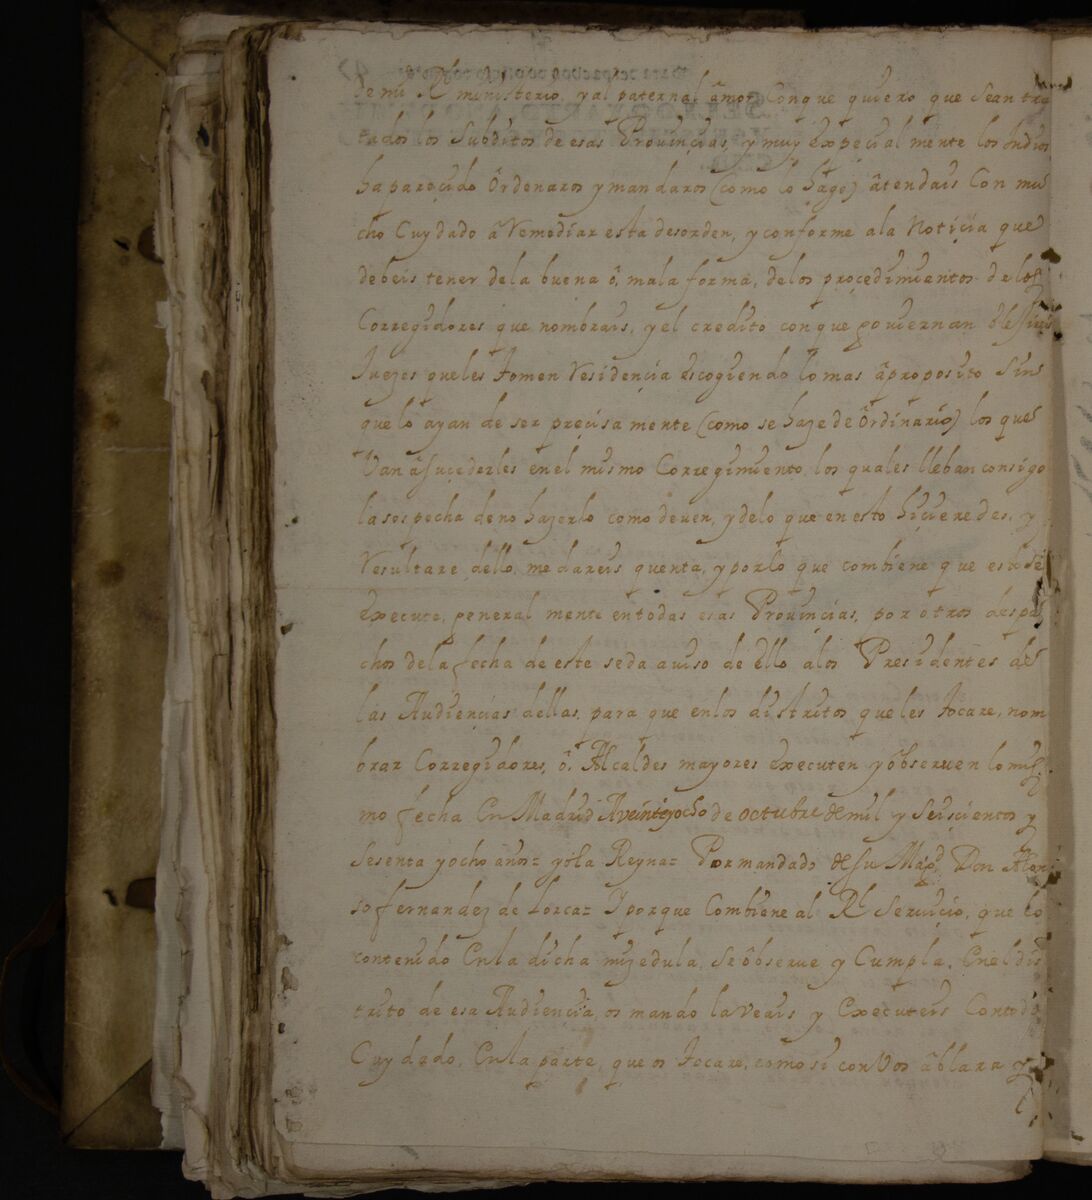 de mi Rl ministerio, y al paternal amor Con que quiero que Sean tra
tados los Subditos de esas Prouinçias, y muy expeçial mente los Indios
ha pareçido Ôrdenaros y mandaros (como lo hago) âtendais Con mu
cho Cuydado â Remediar esta desorden, y conforme a la Notiçia que
debeis tener de la buena ô, mala forma, de los proçedimientos de los
Corregidores que nombrais, y el credito con que gouiernan
Juezes que les tomen Residençia escogiendo lo mas âproposito Sin
que lo ayan de ser preçisa mente (como se haze de Ôrdinario) los que
Van â suçederles en el mismo Corregimiento, los quales lleban consigo
la sospecha de no hazerlo como deuen, y de lo que en esto hiçieredes, y
Resultare dello, me dareis quenta, y por lo que combiene que esto se
execute, general mente en todas esas Prouinçias, por otros despa
chos de la fecha de este se da auiso de Ello a los Presidentes de
las Audiençias dellas, para que en los distritos que les tocare, nom
brar Corregidores, ô, Alcaldes mayores executen y ôbseruen lo mis
mo fecha En Madrid A veinte y ocho de octubre de mil y Seisçientos y
Sesenta y ocho años= yo la Reyna= Por mandado de su Magd. Don Alon
so fernandez de Lorca= Y porque Combiene al Rl Seruiçio, que lo
contenido En la dicha mi zedula, Se ôbserue y Cumpla, En el dis
trito de esa Audiençia, os mando la Veais y Executeis Con todo
Cuydado, En la parte, que os tocare, como si con Vos âblara y